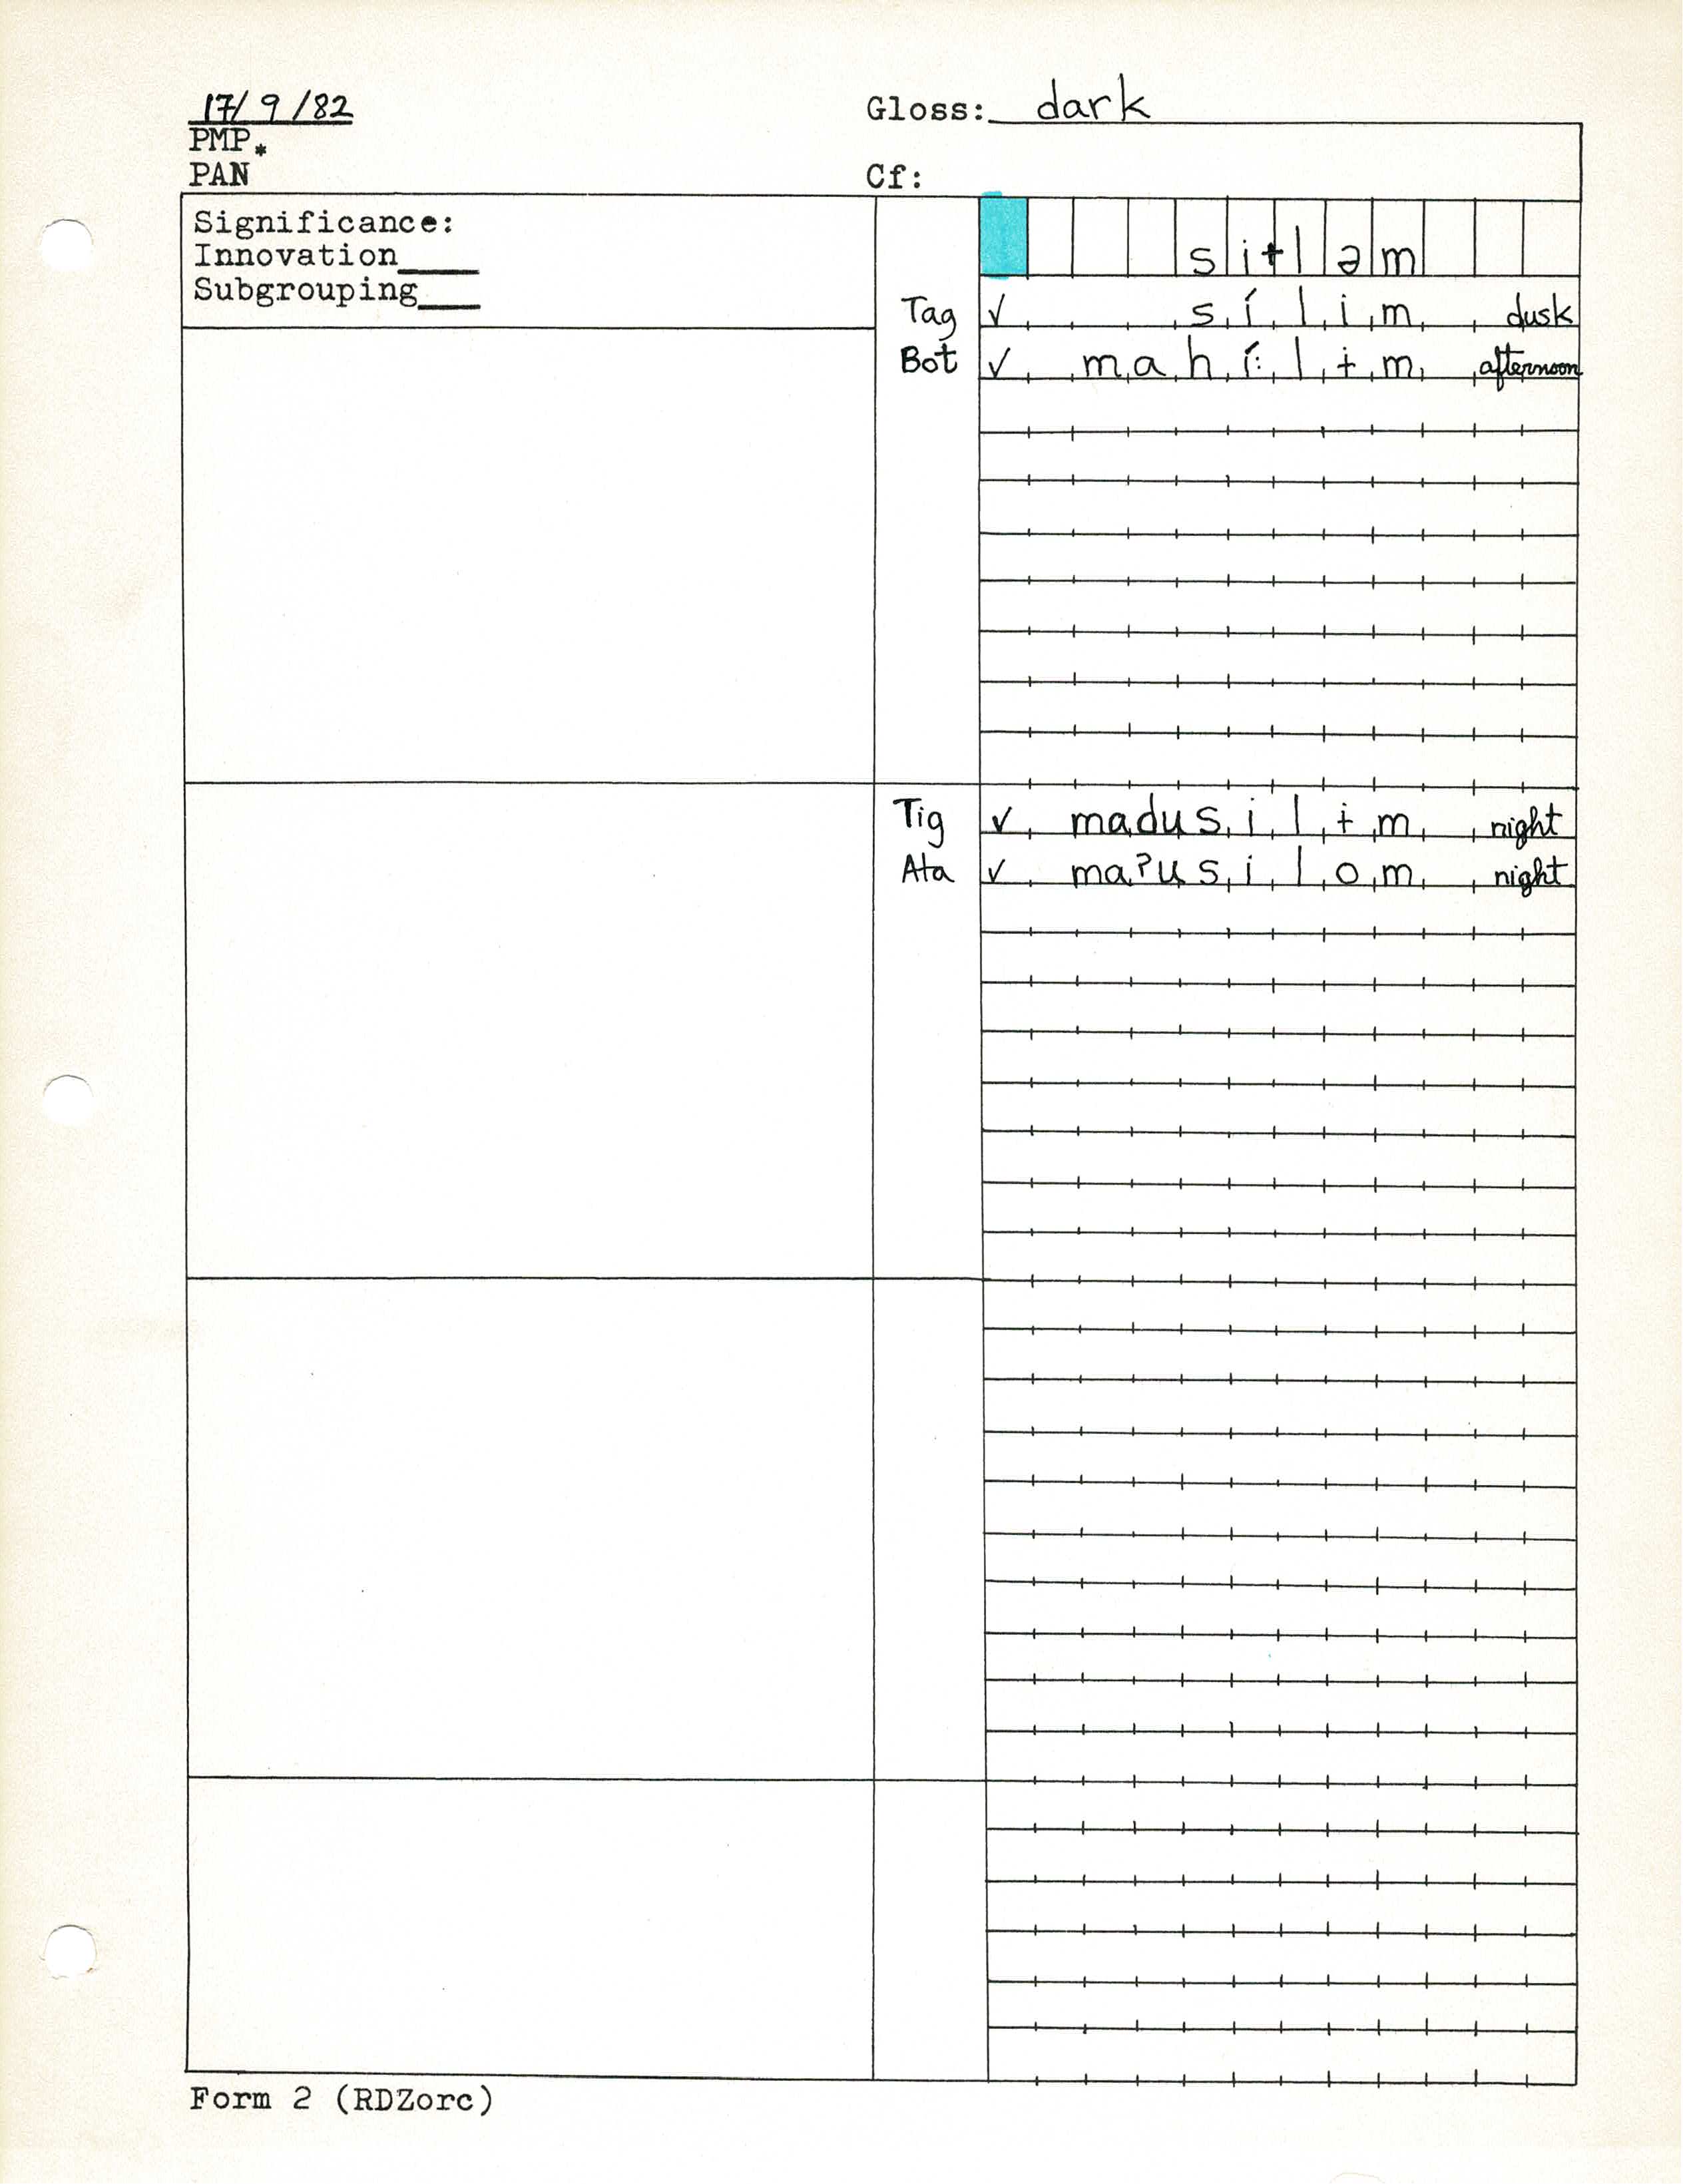 17/9/82 Gloss: dark
PMP *
PAN Cf:
Significance:
Innovation____
Subgrouping___
si+ləm
Tag ✓ sílim dusk
Bot ✓ mahí:lɨm afternoon
Tig ✓ madusilɨm night
Ata ✓ maʔusilom night
Form 2 (RDZorc)